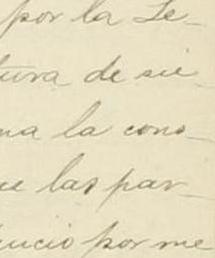 por la Le-
tura de sie-
na la cons-
ue las par-
uncio por me